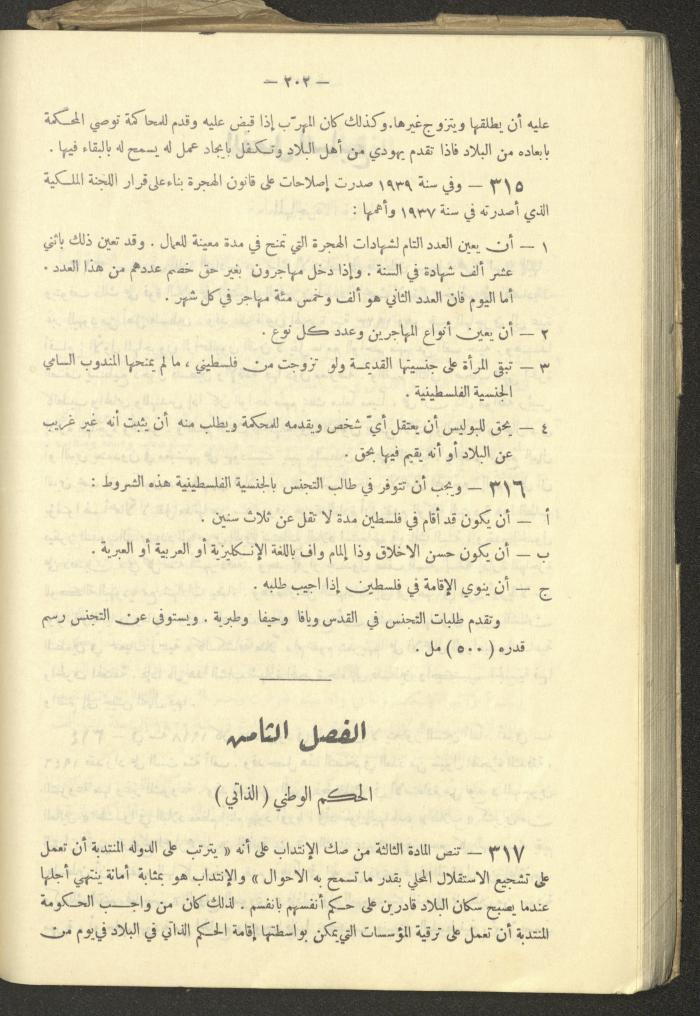 — ٢٠٢ —
عليه أن يطلقها ويتزوج غيرها. وكذلك كان المهرّب إذا قبض عليه وقدم للمحاكمة توصي المحكمة
بابعاده من البلاد فاذا تقدم يهودي من أهل البلاد وتكفل بايجاد عمل له يسمح له بالبقاء فيها .
٣١٥ — وفي سنة ١٩٣٩ صدرت إصلاحات على قانون الهجرة بناء على قرار اللجنة الملكية
الذي أصدرته في سنة ١٩٣٧ وأهمها :
١ — أن يعين العدد التام لشهادات الهجرة التي تمنح في مدة معينة للعمال . وقد تعين ذلك باثني
عشر ألف شهادة في السنة . وإذا دخل مهاجرون بغير حق خصم عددهم من هذا العدد .
أما اليوم فان العدد الثاني هو ألف وخمس مئة مهاجر في كل شهر .
٢ — أن يعين أنواع المهاجرين وعدد كل نوع .
٣ — تبقى المرأة على جنسيتها القديمة ولو تزوجت من فلسطيني ، ما لم يمنحها المندوب السامي
الجنسية الفلسطينية .
٤ — يحق للبوليس أن يعتقل أيّ شخص ويقدمه للمحكمة ويطلب منه أن يثبت أنه غير غريب
عن البلاد أو أنه يقيم فيها بحق .
٣١٦ — ويجب أن تتوفر في طالب التجنس بالجنسية الفلسطينية هذه الشروط :
أ — أن يكون قد أقام في فلسطين مدة لا تقل عن ثلاث سنين .
ب — أن يكون حسن الاخلاق وذا إلمام واف باللغة الإنكليزية أو العربية أو العبرية .
ج — أن ينوي الإقامة في فلسطين إذا اجيب طلبه .
وتقدم طلبات التجنس في القدس ويافا وحيفا وطبرية . ويستوفى عن التجنس رسم
قدره (٥٠٠) مل .
الفصل الثامن
الحكم الوطني (الذاتي)
٣١٧ — تنص المادة الثالثة من صك الإنتداب على أنه « يترتب على الدوله المنتدبة أن تعمل
على تشجيع الاستقلال المحلي بقدر ما تسمح به الاحوال » والإنتداب هو بمثابة أمانة ينتهي أجلها
عندما يصبح سكان البلاد قادرين على حكم أنفسهم بانفسهم . لذلك كان من واجب الحكومة
المنتدبة أن تعمل على ترقية المؤسسات التي يمكن بواسطتها إقامة الحكم الذاتي في البلاد في يوم من